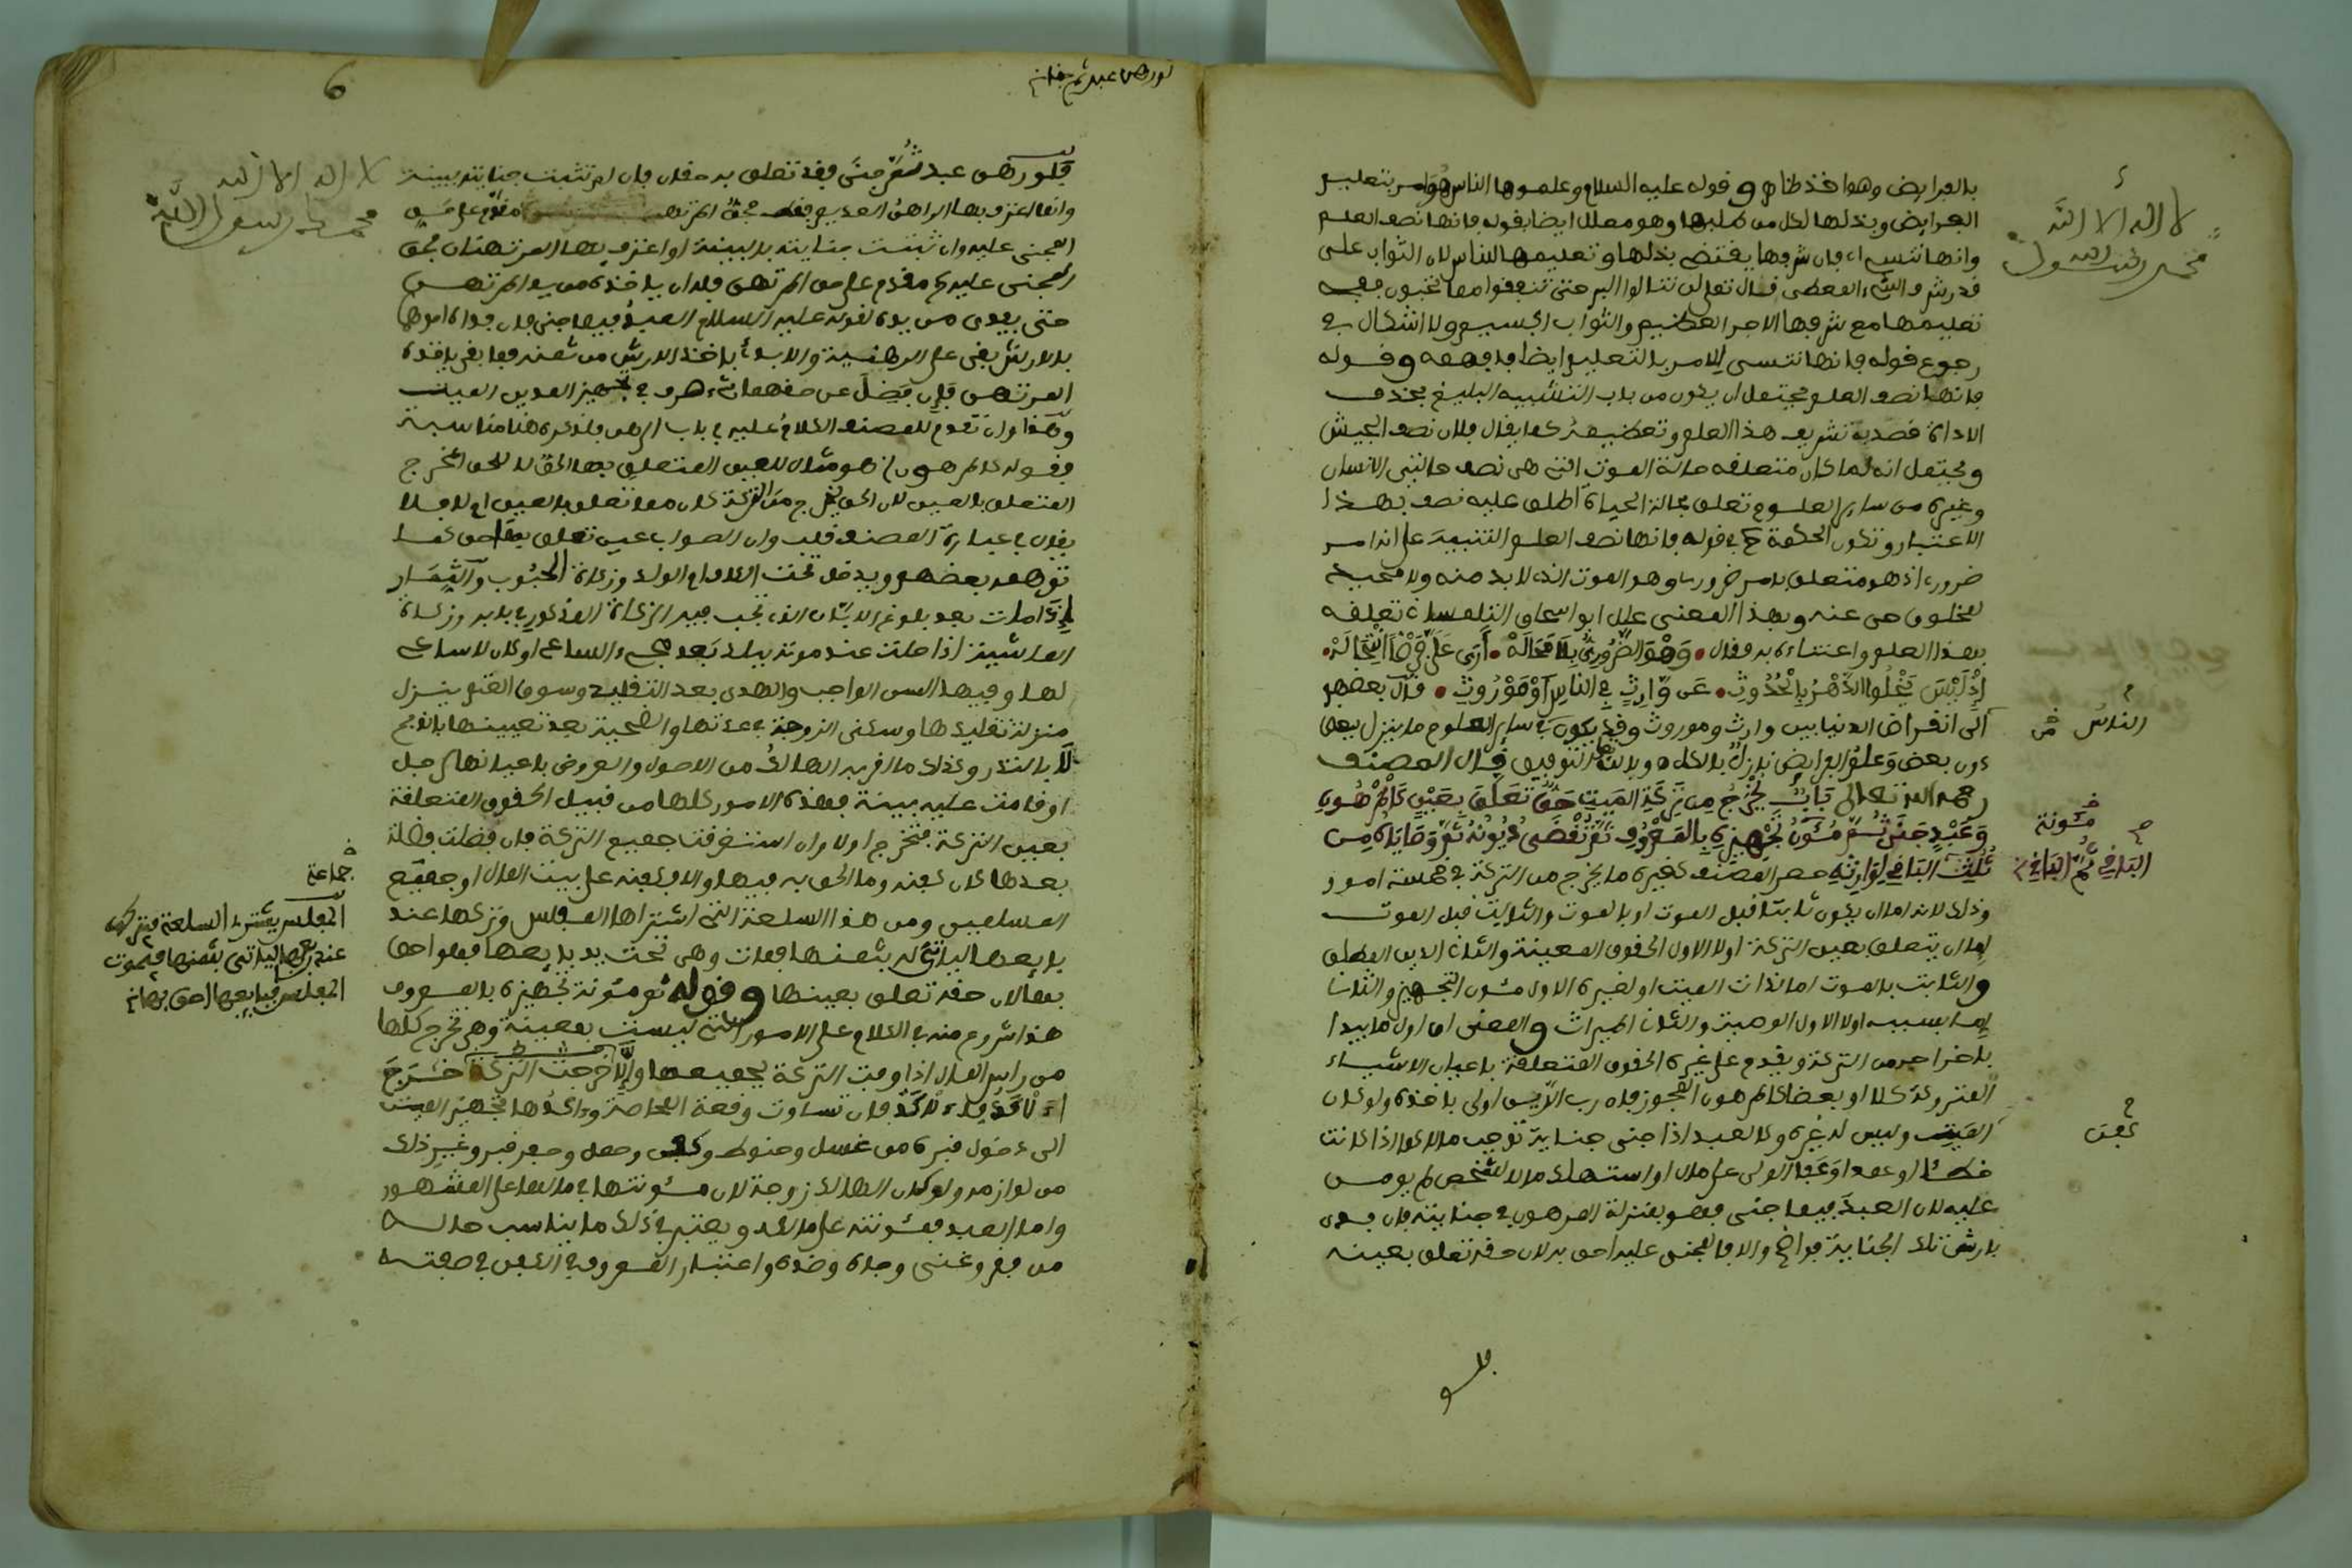 بالفرايض وهذا اخذ ظاهر وقوله عليه السلام وعلموها الناس هو امر بتعليم
الفرايض وبذلها لكل من طلبها وهو معلل ايضا بقوله فانها نصف العلم
وانها تنسى اي فان شرفها يقتضي بذلها وتعليمها للناس لان الثواب على
قدر شرف الشيء المعطى قال تعالى لن تنالوا البر حتى تنفقوا مما تحبون ففي
تعليمها مع شرفها الاجر العظيم والثواب الجسيم ولا اشكال في
رجوع قوله فانها تنسى للامر بالتعليم ايضا فافهمه وقوله
فانها نصف العلم يحتمل ان يكون من باب التشبيه البليغ بحذف
الاداة قصد به تشريف هذا العلم وتعظيمه كما يقال فلان نصف الجيش
ويحتمل انه لما كان متعلقه حالة الموت التي هي نصف حالتي الانسان
وغيره من ساير العلوم تعلق بحالة الحياة اطلق عليه نصف بهذا
الاعتبار وتكون الحكمة ح في قوله فانها نصف العلم التنبيه على انه امر
ضروري اذ هو متعلق بامر ضروري وهو الموت الذي لا بد منه ولا محيد
لمخلوق حي عنه وبهذا المعنى علل ابو اسحاق التلمساني تعلقه
بهذا العلم واعتناءه به فقال وَهْوَ الضَّرُورِيُّ بِلَا مَحَالَهْ
إِذْ لَيْسَ يَخْلُوا الدَّهْرُ بِالْحُدُوثِ عَن وَّارِثٍ فِي النَّاسِ أَوْ مَوْرُوثِ قال بعضهم
الى انقراض الدنيا بين وارث وموروث وقد يكون في ساير العلوم ما ينزل ببعض
دون بعض وعلم الفرايض نازل بالكل وبالله التوفيق قال المصنف
رحمه الله تعالى بَابٌ يُخْرَجُ مِن تَرِكَةِ المَيِّتِ حَقٌّ تَعَلَّقَ بِعَيْنٍ كَالْمَرْهُونِ
وَعَبْدٍ جَنَى ثُمَّ مُئَوَنُ تَجْهِيزِهِ بِالْمَعْرُوفِ ثُمَّ تُقْضَى دُيُونُهُ ثُمَّ وَصَايَاهُ مِن
ثُلُثِ البَاقِي لِوَارِثِهِ حصر المصنف كغيره ما يخرج من التركة في خمسة امور
وذلك لانه اما ان يكون ثابتا قبل الموت او بالموت والثابت قبل الموت
اما ان يتعلق بعين التركة اولا الاول الحقوق المعينة والثاني الدين المطلق
والثابت بالموت اما لذات الميت او لغيره الاول مئون التجهيز والثاني
اما بسببه اولا الاول الوصية والثاني الميراث والمعنى ان اول ما يبدا
باخراجه من التركة ويقدم على غيره الحقوق المتعلقة باعيان الاشياء
المتروكة كلا او بعضا كالمرهون المحوز فان رب الدين اولى باخذه ولو كان
الميت وليس له غيره وكالعبد اذا جنى جناية توجب مالا كما اذا كانت
خطئا او عمدا وعفا الولي على مال او استهلك مالا لشخص لم يومن
عليه لان العبد فيما جنى فهو بمنزلة المرهون في جنايته فان فدي
بارش تلك الجناية فواضح والا فالمجني عليه احق به لان حقه تعلق بعينه
لا اله الا الله
محمد رسول الله
الناس
مئونة
الباقي ثم الباقي
كفن
فلو
لو رهن عبد ثم جنى
6
فلو رهن عبد ثُمَّ جنى فقد تعلق به حقان فان لم تثبت جنايته ببينة
وانما اعترف بها الراهن المديم فقط فحق المرتهن مقدم على حق
المجني عليه وان ثبتت جنايته بالبينة او اعترف بها المرتهنان فحق
المجني عليه مقدم على حق المرتهن فله ان ياخذه من يد المرتهن
حتى يفدى من يده لقوله عليه السلام العبد فيما جنى فان فداه
بالارش بقي على الرهنية والا بدئ باخذ الارش من ثمنه فما بقي ياخذه
المرتهن فان فضل عن حقهما شيء صرف في تجهيز المدين الميت
وهذا وان تقدم للمصنف الكلام عليه في باب الرهن فلذكره هنا مناسبة
فقوله كالمرهون هو مثال للعين المتعلق بها الحق لا للحق المخرج
المتعلق بالعين لان الحق يخرج من التركة كان مما تعلق بالعين ام لا فلا
يقال في عبارة المصنف قلب وان الصواب عين تعلق بها حق كما
توهمه بعضهم ويدخل تحت الكاف ام الولد وزكاة الحبوب والثمار
اذا مات بعد بلوغ الابان الذي تجب فيه الزكاة المذكور في بابه وزكاة
الماشية اذا حلت عند موته ببلد بعد مجيء الساعي او كان لا ساعي
لها وفيها السن الواجب والهدي بعد التقليد وسوق الغنم ينزل
منزلة تقليدها وسكنى الزوجة في عدتها والضحية بعد تعيينها بالذبح
لا بالنذر وكذلك ما اقر به الهالك من الاصول والعروض باعيانها لرجل
او قامت عليه بينة فهذه الامور كلها من قبيل الحقوق المتعلقة
بعين التركة فتخرج اولا وان استغرقت جميع التركة فان فضلت فضلة
بعدها كان كفنه وما الحق به فيها والا فكفنه على بيت المال او جميع
المسلمين ومن هذا السلعة التي اشتراها المفلس وتركها عند
بايعها الياتي له بثمنها فمات وهي تحت يد بايعها فهو احق
بها لان حقه تعلق بعينها وقوله ثم مئونة تجهيزه بالمعروف
هذا شروع منه في الكلام على الامور التي ليست بمعينة وهي تخرج كلها
من راس المال اذا وفت التركة بجميعها والا خرجت التركة خَرَجَ
الْآكَدُ فالْآكَدُ فان تساوت وقعة المحاصة وءاكدها تجهيز الميت
الى دخول قبره من غسل وحنوط وكفن وحمل وحفر قبر وغير ذلك
من لوازمه ولو كان الهالك زوجة لان مئونتها في مالها على المشهور
واما العبد فمئونته على مالكه ويعتبر في ذلك ما يناسب حاله
من فقر وغنى وجدة وضده واعتبار المعروف في الكفن في صفته
لا اله الا الله
محمد رسول الله
جماعة
المفلس يشتري السلعة فيتركها
عند ربها الياتي بثمنها فيموت
المفلس فبايعها احق بها